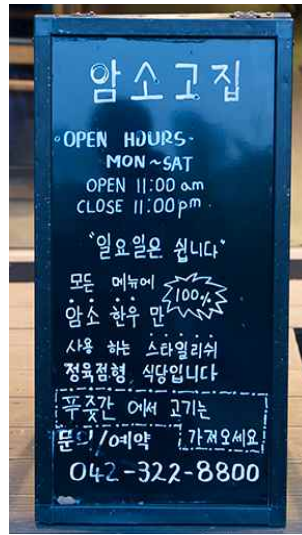 암소고집
OPEN HOURS
MON~SAT
OPEN 11:00 am
CLOSE 11:00 pm
"일요일은 쉽니다"
모든 메뉴에
100%
암소 한우 만
사용 하는 스타일리쉬
정육점형 식당입니다
푸줏간 에서 고기는
가져오세요
문의/예약
042-322-8800